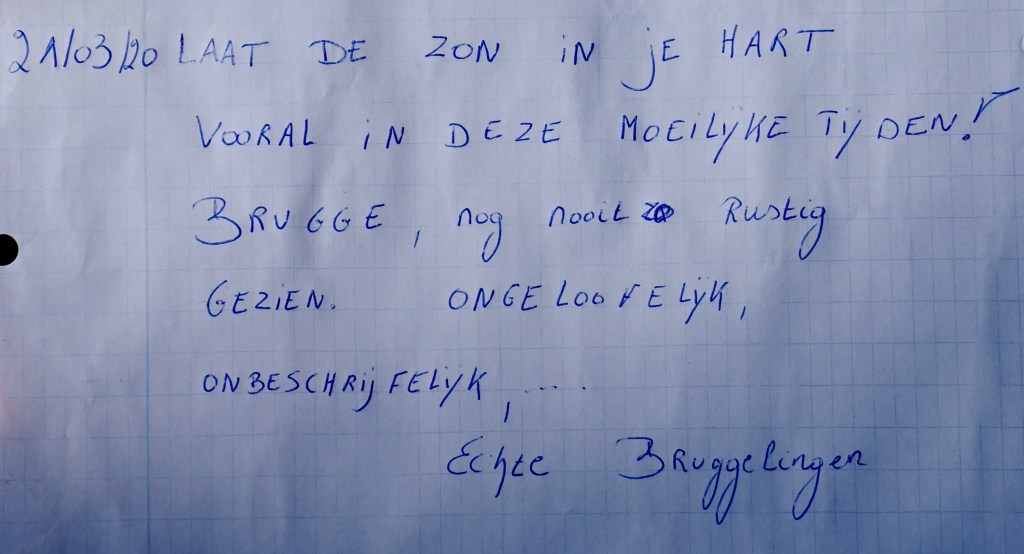 21/03/20 LAAT DE ZON IN JE HART
VOORAL IN DEZE MOEILIJKE TIJDEN!
BRUGGE, nog nooit zo Rustig
GEZIEN. ONGELOOFELIJK,
ONBESCHRIJFELIJK, ....
Echte Bruggelingen